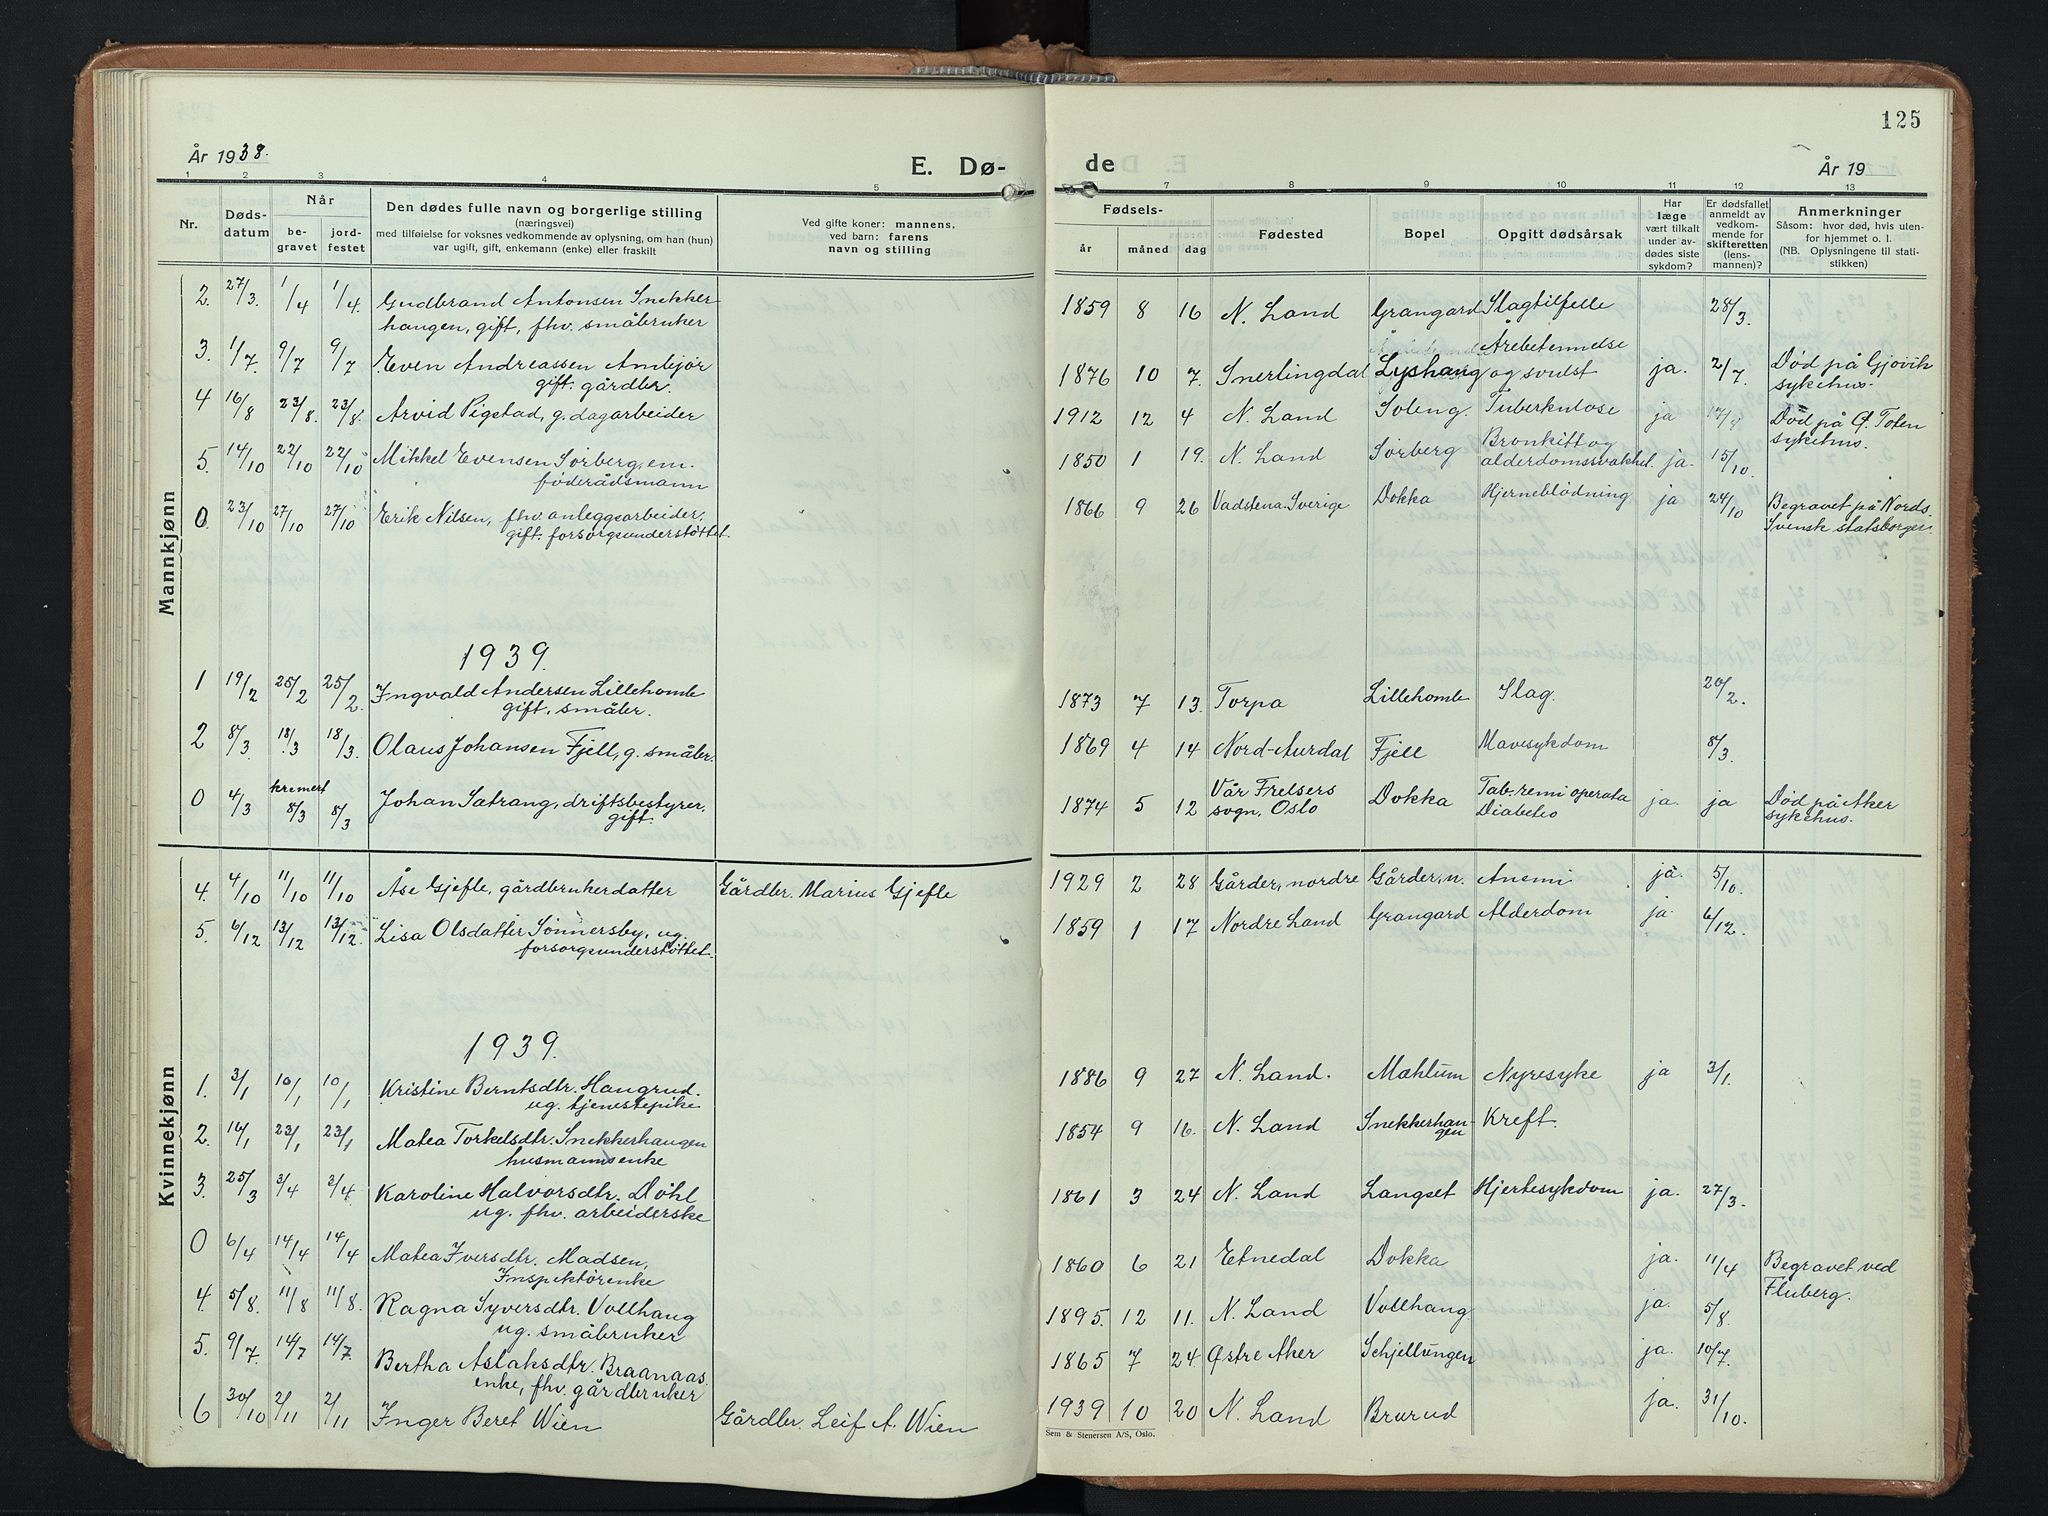 125
År 1938.
E. Dø-
de
År 19
1 2 3 4 5 7 8 9 10 11 12 13
Nr. | Døds-datum | Når be-gravet | jord-festet | Den dødes fulle navn og borgerlige stilling (næringsvei) med tilføielse for voksnes vedkommende av oplysning, om han (hun) var ugift, gift, enkemann (enke) eller fraskilt | Ved gifte koner: mannens, ved barn: farens navn og stilling | Fødsels- år | måned | dag | Fødested | Bopel | Opgitt dødsårsak | Har læge vært tilkalt under av-dødes siste sykdom? | Er dødsfallet anmeldt av vedkom-mende for skifteretten (lens-mannen)? | Anmerkninger Såsom: hvor død, hvis uten-for hjemmet o. l. (NB. Oplysningene til stati-stikken)
Mannkjønn
2. 27/3. 1/4 1/4. Gudbrand Antonsen Snekker 1859 8 16 N. Land Grangard Slagtilfelle 28/3.
haugen, gift, fhv. småbruker
3. 1/7. 9/7 9/7 Even Andreassen Amlejør Årebetennelse
gift. gårdbr. 1876 10 7. Snertingdal Lyshaug og svulst ja. 2/7. Død på Gjøvik
sykehus.
4 16/8 23/8. 23/8. Arvid Pigstad, g. dagarbeider 1912 12 4 N. Land Soleng. Tuberkulose ja Død på Ø. Toten
sykehus.
5. 14/10 22/10 22/10 Mikkel Evensen Sørberg, em. 1850 1 19. N. Land Sørberg Bronkitt og
føderådsmann alderdomssvakhet. ja. 15/10.
0. 23/10 27/10 27/10 Erik Nilsen, fhv. anleggsarbeider, 1866 9 26 Vadstena. Sverige Dokka Hjerneblødning ja 24/10 Begravet på Nords.
gift. forsorgsunderstøttet. Svensk statsborger.
1939.
1 19/2 25/2 25/2. Ingvald Andersen Lillehomle 1873 7 13. Torpa Lillehomle Slag. 20/2.
gift, småbr.
2 8/3 18/3 18/3. Olaus Johansen Fjell, g. småbr. 1869 4 14 Nord-Aurdal Fjell Mavesykdom 8/3.
0 4/3 kremert 8/3 8/3 Johan Sætrang, driftsbestyrer, 1874 5 12 Vår Frelsers Dokka ja. ja Død på Aker
gift. sogn, Oslo Diabetes sykehus.
Kvinnekjønn
4. 4/10 11/10 11/10 Åse Gjefle, gårdbrukerdatter Gårdbr. Marius Gjefle 1929 2 28 Gårder, nordre Gårder, n. Anemi ja. 5/10.
5. 6/12 13/12 13/12. Lisa Olsdatter Sønnersby, ug. 1859 1 17 Nordre Land Grangard Alderdom ja 6/12.
forsorgsunderstøttet.
1939.
1. 3/1 10/1 10/1 Kristine Berntsdtr. Haugrud. 1886 9 27 N. Land. Mæhlum Nyresyke ja 3/1.
ug. tjenestepike
2. 16/1 23/1 23/1 Matea Torkelsdtr. Snekkerhaugen 1854 9 16. N. Land Snekkerhau-gen Kreft.
husmannsenke
3. 25/3 3/4 3/4. Karoline Halvorsdtr. Døhl 1861 3 24 N. Land Langset Hjertesykdom ja. 27/3.
ug. fhv. arbeiderske
0 6/4 14/4 14/4 Matea Iversdtr. Madsen, 1860 6 21 Etnedal Dokka ja. 11/4 Begravet ved
Inspektørenke Fluberg.
4. 5/8. 11/8 11/8. Ragna Syversdtr. Vollhaug 1895. 12 11. N. Land Vollhaug ja. 5/8.
ug. småbruker
5. 9/7. 14/7 14/7. Bertha Aslaksdtr. Braanaas. 1865 7 24 Østre Aker Schjellungen ja. 10/7.
enke, fhv. gårdbruker
6 30/10 2/11 2/11 Inger Beret Wien Gårdbr. Leif A. Wien 1939 10 20 N. Land Brurud ja. 31/10.
Sem & Stenersen A/S, Oslo.